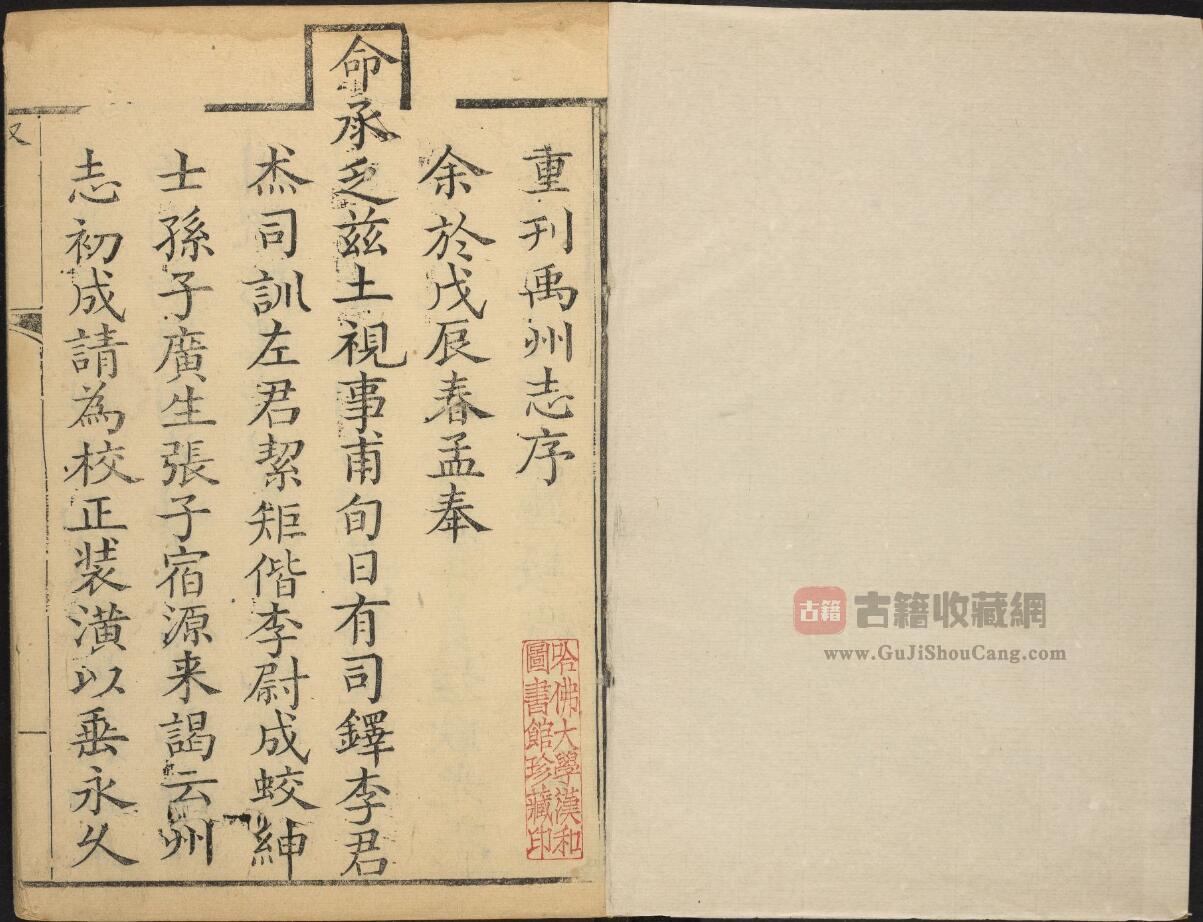 重刊禹州志序
余於戊辰春孟奉
命承乏兹土視事甫旬日有司鐸李君
杰司訓左君絜矩偕李尉成蛟紳
士孫子廣生張子宿源来謁云州
志初成請為校正装潢以垂永久
哈佛大學漢和
圖書館珍藏印
古籍
古籍收藏網
www.GuJiShouCang.com